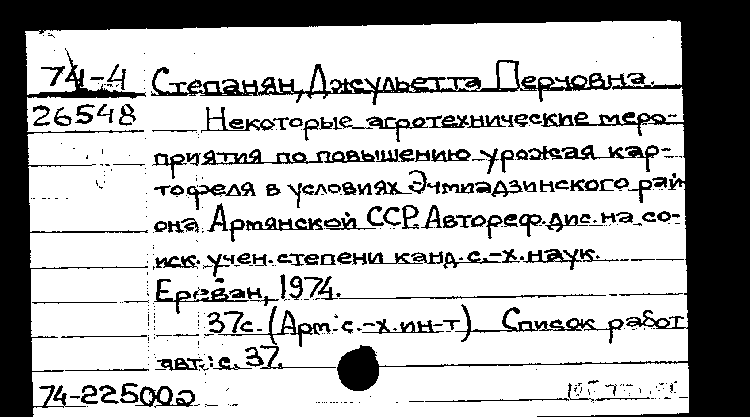 74-4 Степанян, Джульетта Перчовна.
26548 Некоторые агротехнические меро-
приятия по повышению урожая кар-
тофеля в условиях Эчмиадзинского рай
она Армянской ССР. Автореф. дис. на со-
иск. учен. степени канд. с.-х. наук.
Ереван, 1974.
37с. (Арм. с.-х. ин-т). Список работ
авт.: с. 37.
74-22500а